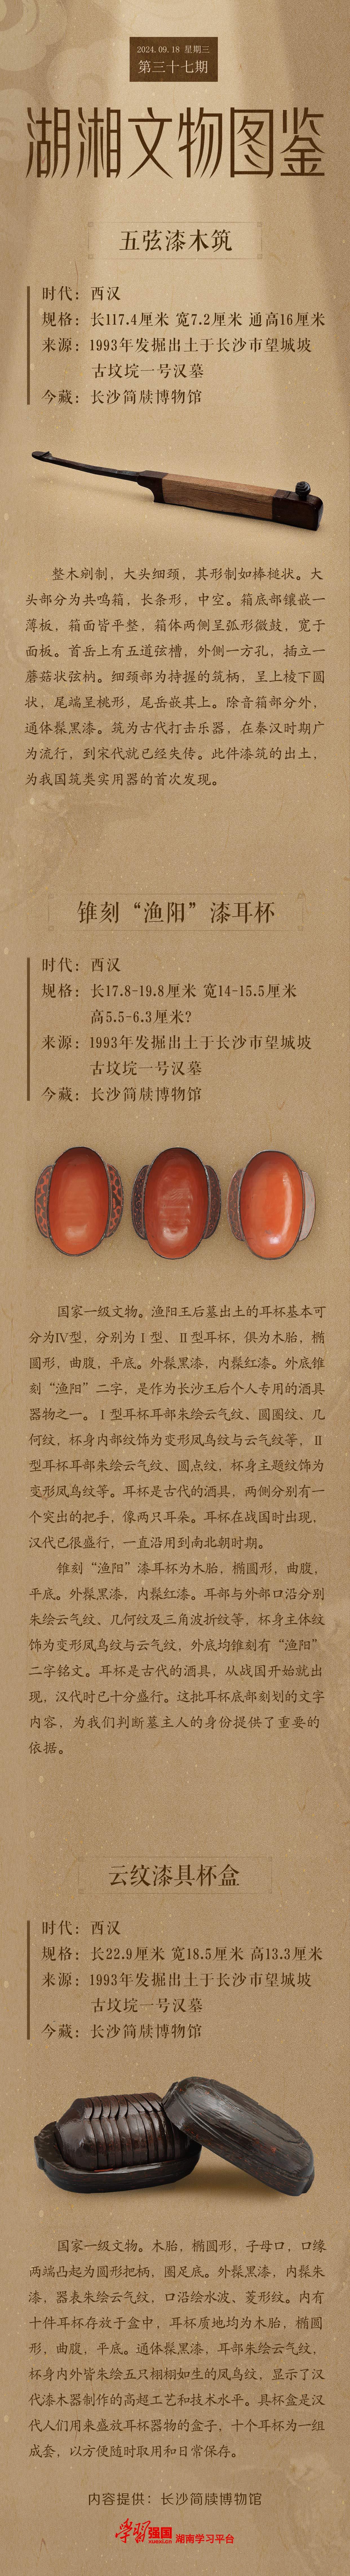 2024.09.18 星期三
第三十七期
湖湘文物图鉴
五弦漆木筑
时代：西汉
规格：长117.4厘米 宽7.2厘米 通高16厘米
来源：1993年发掘出土于长沙市望城坡
古坟垸一号汉墓
今藏：长沙简牍博物馆
整木剜制，大头细颈，其形制如棒槌状。大
头部分为共鸣箱，长条形，中空。箱底部镶嵌一
薄板，箱面皆平整，箱体两侧呈弧形微鼓，宽于
面板。首岳上有五道弦槽，外侧一方孔，插立一
蘑菇状弦枘。细颈部为持握的筑柄，呈上棱下圆
状，尾端呈桃形，尾岳嵌其上。除音箱部分外，
通体髹黑漆。筑为古代打击乐器，在秦汉时期广
为流行，到宋代就已经失传。此件漆筑的出土，
为我国筑类实用器的首次发现。
锥刻“渔阳”漆耳杯
时代：西汉
规格：长17.8-19.8厘米 宽14-15.5厘米
高5.5-6.3厘米?
来源：1993年发掘出土于长沙市望城坡
古坟垸一号汉墓
今藏：长沙简牍博物馆
国家一级文物。渔阳王后墓出土的耳杯基本可
分为Ⅳ型，分别为Ⅰ型、Ⅱ型耳杯，俱为木胎，椭
圆形，曲腹，平底。外髹黑漆，内髹红漆。外底锥
刻“渔阳”二字，是作为长沙王后个人专用的酒具
器物之一。Ⅰ型耳杯耳部朱绘云气纹、圆圈纹、几
何纹，杯身内部纹饰为变形凤鸟纹与云气纹等，Ⅱ
型耳杯耳部朱绘云气纹、圆点纹，杯身主题纹饰为
变形凤鸟纹等。耳杯是古代的酒具，两侧分别有一
个突出的把手，像两只耳朵。耳杯在战国时出现，
汉代已很盛行，一直沿用到南北朝时期。
锥刻“渔阳”漆耳杯为木胎，椭圆形，曲腹，
平底。外髹黑漆，内髹红漆。耳部与外部口沿分别
朱绘云气纹、几何纹及三角波折纹等，杯身主体纹
饰为变形凤鸟纹与云气纹，外底均锥刻有“渔阳”
二字铭文。耳杯是古代的酒具，从战国开始就出
现，汉代时已十分盛行。这批耳杯底部刻划的文字
内容，为我们判断墓主人的身份提供了重要的
依据。
云纹漆具杯盒
时代：西汉
规格：长22.9厘米 宽18.5厘米 高13.3厘米
来源：1993年发掘出土于长沙市望城坡
古坟垸一号汉墓
今藏：长沙简牍博物馆
国家一级文物。木胎，椭圆形，子母口，口缘
两端凸起为圆形把柄，圈足底。外髹黑漆，内髹朱
漆，器表朱绘云气纹，口沿绘水波、菱形纹。内有
十件耳杯存放于盒中，耳杯质地均为木胎，椭圆
形，曲腹，平底。通体髹黑漆，耳部朱绘云气纹，
杯身内外皆朱绘五只栩栩如生的凤鸟纹，显示了汉
代漆木器制作的高超工艺和技术水平。具杯盒是汉
代人们用来盛放耳杯器物的盒子，十个耳杯为一组
成套，以方便随时取用和日常保存。
内容提供：长沙简牍博物馆
学习强国 xuexi.cn 湖南学习平台